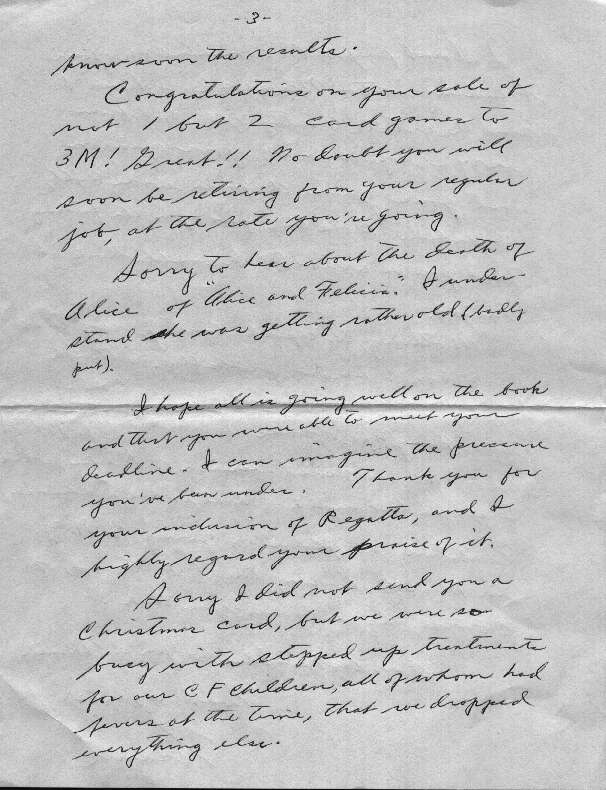 -3-
know soon the results.
Congratulations on your sale of
not 1 but 2 card games to
3M! Great!!! No doubt you will
soon be retiring from your regular
job, at the rate you're going.
Sorry to hear about the death of
Alice of "Alice and Felicia." I under-
stand she was getting rather old (badly
put).
I hope all is going well on the book
and that you were able to meet your
deadline. I can imagine the pressure
you've been under. Thank you for
your inclusion of Regatta, and I
highly regard your praise of it.
Sorry I did not send you a
Christmas card, but we were so
busy with stepped up treatments
for our CF children, all of whom had
fevers at the time, that we dropped
everything else.